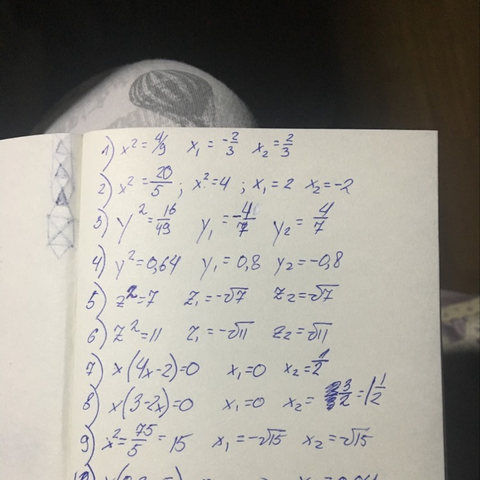 1) x² = 4/9 x₁ = -2/3 x₂ = 2/3
2) x² = 20/5 ; x² = 4 ; x₁ = 2 x₂ = -2
3) y² = 16/49 y₁ = -4/7 y₂ = 4/7
4) y² = 0,64 y₁ = 0,8 y₂ = -0,8
5) z² = 7 z₁ = -√7 z₂ = √7
6) z² = 11 z₁ = -√11 z₂ = √11
7) x(4x-2)=0 x₁ = 0 x₂ = 1/2
8) x(3-2x)=0 x₁ = 0 x₂ = 3/2 = 1 1/2
9) x² = 75/5 = 15 x₁ = -√15 x₂ = √15